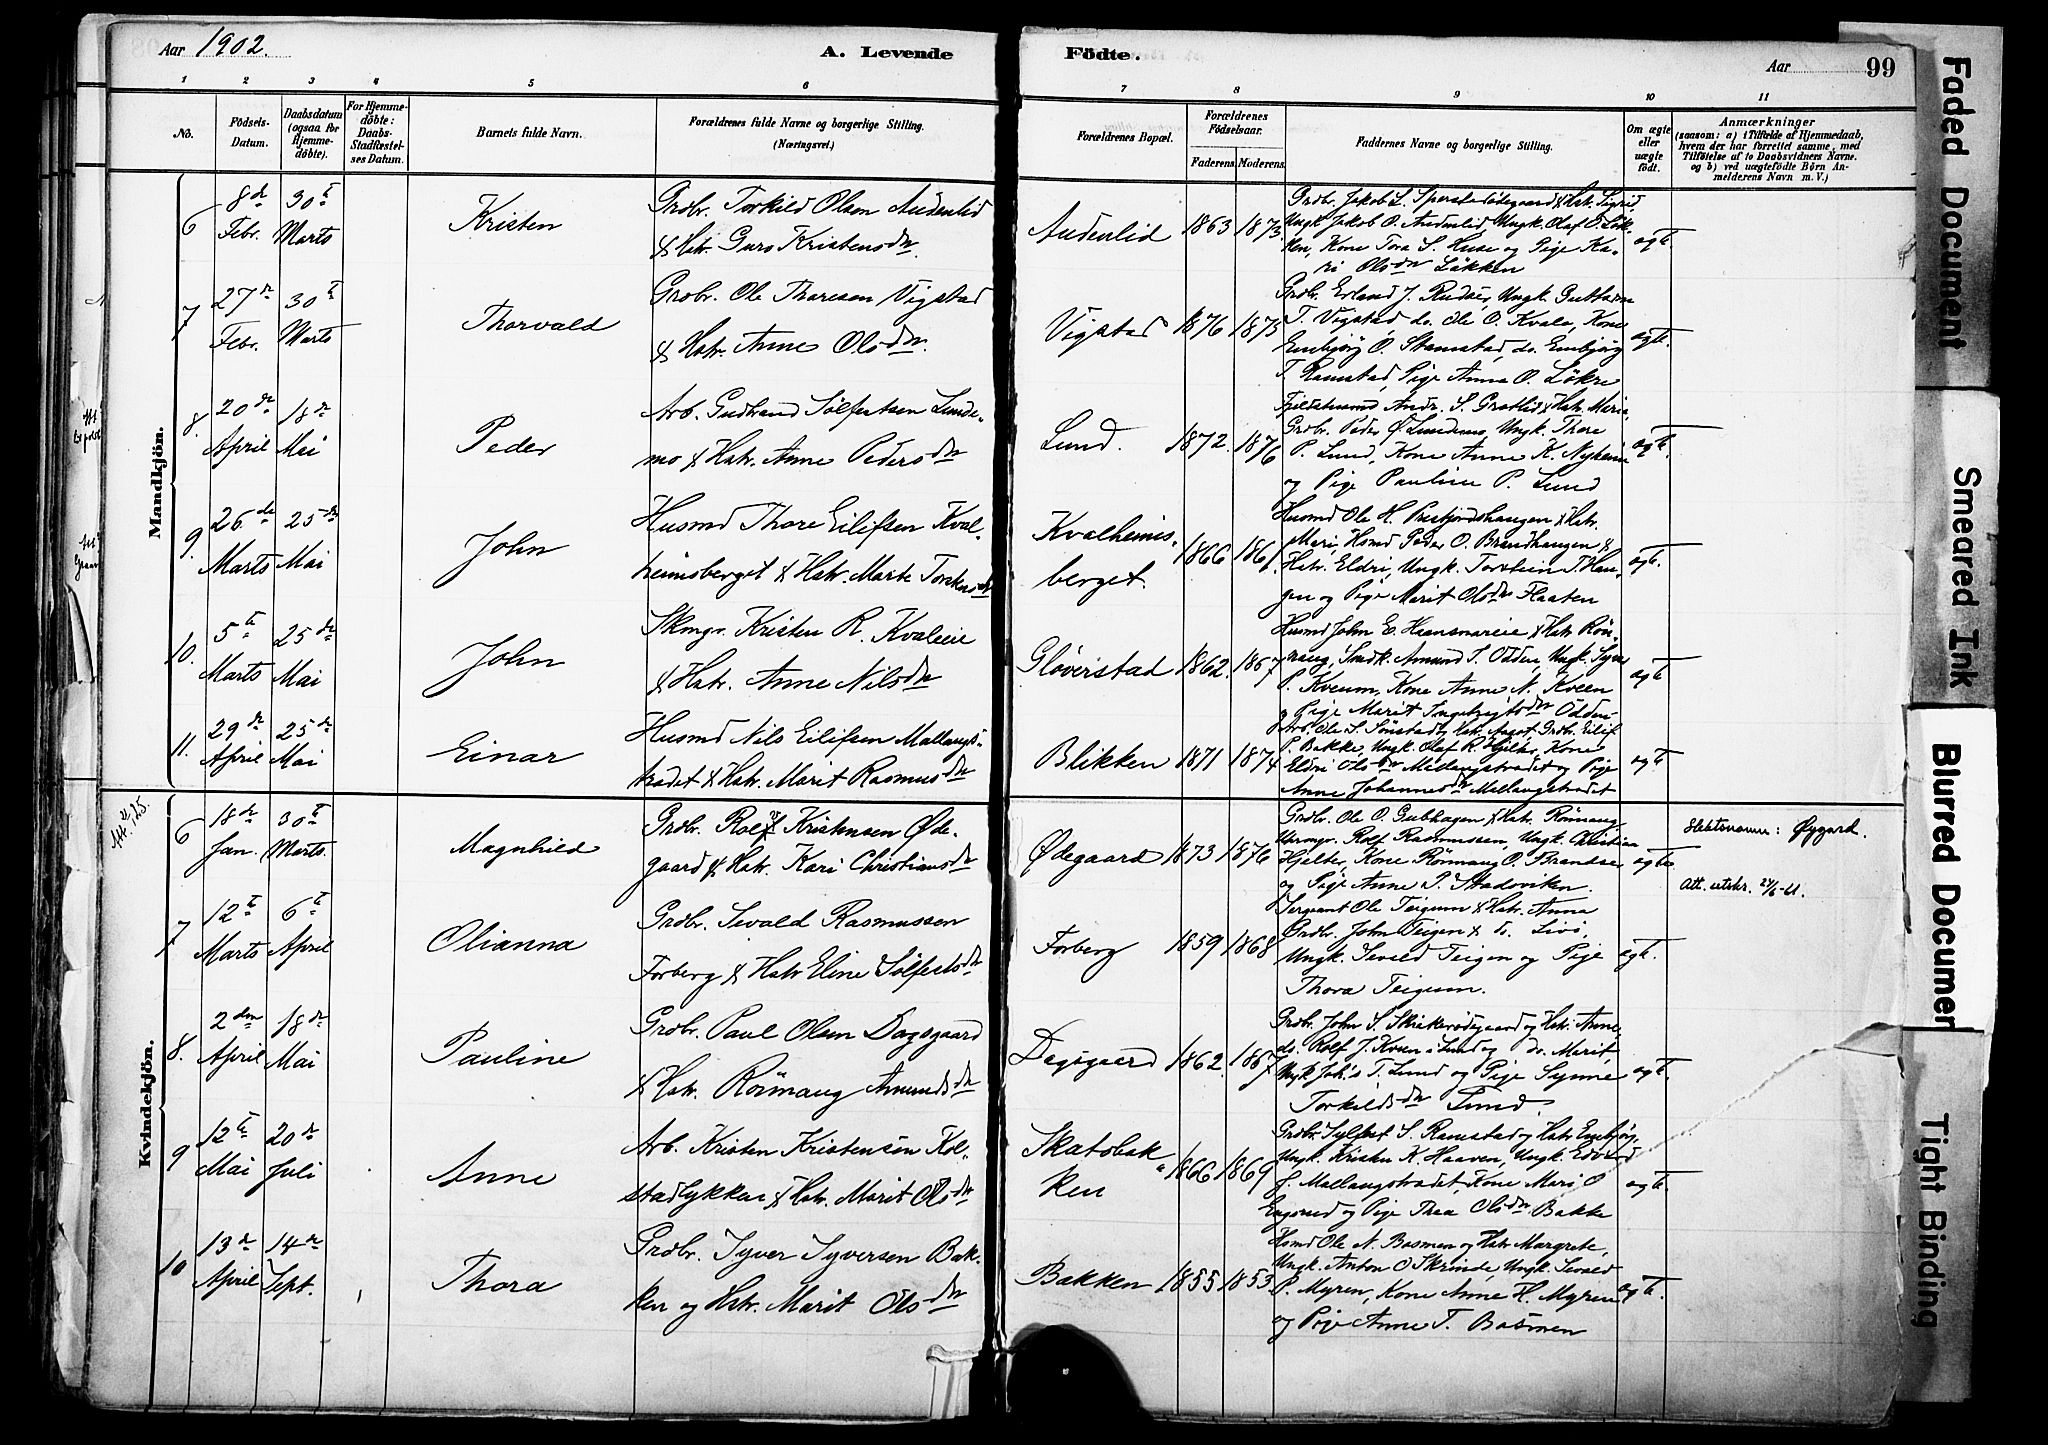 Aar 1902.
A. Levende
Födte.
Aar
99
1 2 3 4 5 6 7 8 9 10 11
Nö.
Födsels-
Datum.
Daabsdatum
(ogsaa for
Hjemme-
döbte).
For Hjemme-
döbte:
Daabs-
Stadfæstel-
ses Datum.
Barnets fulde Navn.
Forældrenes fulde Navne og borgerlige Stilling.
(Næringsvei.)
Forældrenes Bopæl.
Forældrenes
Födselsaar.
Faderens. Moderens.
Faddernes Navne og borgerlige Stilling.
Om ægte
eller
uægte
født.
Anmærkninger
(saasom: a) i Tilfælde af Hjemmedaab,
hvem der har forrettet samme, med
Tilföielse af to Daabsvidners Navne.
og b) ved uægtefödte Börn An-
melderens Navn m. V.)
Mandkjön.
6
8de
Febr.
30te
Marts
Kristen
Grdbr. Torkild Olsen Audenlid
& Hstr. Guro Kristensdn.
Audenlid
1863
1873.
Grdbr. Jakob L. Sperstadödegaard & Hstr. Sigrid
Ungk. Jakob O. Audenlid, Ungk. Olaf O. Løk-
ken, Kone Tora S. Huse og Pige Ka-
ri Olsdn Løkken
ægte.
7
27de
Febr.
30te
Marts
Thorvald
Grdbr. Ole Thoresen Vigstad
& Hstr. Anne Olsdn.
Vigstad
1876
1875
Grdbr. Erland J. Rudse, Ungk. Guttorm
T. Vigstad do. Ole O. Kvale, Kone
Embjørg O. Stamstad, do. Embjørg
T. Ramstad, Pige Anna O. Løkre
ægte.
8.
20de
April
18de
Mai
Peder
Arb. Gudbrand Sølfestsen Lunde-
mo & Hstr. Anne Pedersdn
Lund.
1872.
1876
Fjeldstuemd Andr. S. Grotlid & Hstr. Marie,
Grdbr. Peder Ø. Lundemo, Ungk. Thore
P. Lund, Kone Anne K. Nyheim
og Pige Pauline P. Lund
ægte.
9.
26de
Marts
25de
Mai
John
Husmd Thore Eilifsen Kval-
heimsberget & Hstr. Marte Torstensdn
Kvalheims-
berget.
1866
1861
Husmd Ole H. Prestjordshaugen & Hstr.
Mari, Hsmd Peder O. Brandhaugen &
Hstr. Eldri, Ungk. Torstein T. Hau-
gen og Pige Marit Olsdn Flaaten
ægte.
10.
5te
Marts
25de
Mai
John
Skmgr. Kristen R. Kvaleie
& Hstr. Anne Nilsdn
Gløverstad
1862.
1867
Husmd John E. Haansnareie & Hstr. Røn-
naug, Smdk. Amund T. Odden, Ungk. Syver
P. Kveum, Kone Anne N. Kveen
og Pige Marit Ingebrigtsdn Odden
ægte
11.
29de
April
25de
Mai
Einar
Husmd Nils Eilifsen Mallangs-
tradet & Hstr. Marit Rasmusdn
Blikken
1871
1874
Arb. Ole S. Sønstad og Hstr. Aagot, Grdbr. Eilif
P. Bakke, Ungk. Olaf R. Hjelter, Kone
Eldri Olsdn Mallangstradet og Pige
Anne Johannesdn Mallangstradet
ægte
Kvindekjön.
6
18de
Jan.
30te
Marts.
Magnhild
Grdbr. Rolf Kristensen Øde-
gaard & Hstr. Kari Christiansdn
Ødegaard
1873
1876
Grdbr. Ole O. Gubhagen, & Hstr. Rønnaug,
Urmgr. Rolf Rasmussen, Ungk. Christian
Hjelter, Kone Rønnaug O. Strandse,
og Pige Anne P. Stadeviken.
ægte
Slektsnavn: Øygard.
Att. utskr. 27/6-41.
7
12te
Marts
6te
April
Olianna
Grdbr. Sevald Rasmussen
Forberg & Hstr Eline Sølfestsdn
Forberg
1859
1868
Sergeant Ole Teigum & Hstr. Anna
Grdbr. John Teigen & do. Livi,
Ungk. Sevald Teigen og Pige
Thora Teigum.
ægte.
8.
2den
April
18de
Mai
Pauline
Grdbr. Paul Olsen Dagsgaard
& Hstr. Rønnaug Amundsdn
Dagsgaard
1862.
1867
Grdbr. John S. Skiakerødegaard og Hstr. Anne,
do. Rolf J. Kveen i Lund og do. Marit
Ungk Joh's T. Lund og Pige Synne
Torkildsdn Lund.
ægte.
9
12te
Mai
20de
Juli
Anne
Arb. Kristen Kristensøn Kol-
stadlykkai & Hstr. Marit Olsdn
Skatobak-
ken
1866
1869
Grdbr. Sylfest S. Ramstad og Hstr Embjørg,
Ungk. Kristen K. Haaven, Ungk. Edvard
J. Mallangstradet, Kone Mari O
Engsund og Pige Thea Olsdn Bakke
ægte.
10
13de
April
14de
Sept.
Thora
Grdbr. Syver Syversen Bak-
ken og Hstr. Marit Olsdn
Bakken
1855
1853
Hsmd Ole N. Bosmen og Hstr. Margrete,
Ungk. Anton O Skrinde, Ungk. Sevald
P. Myren, Kone Anne H. Myren
og Pige Anne T. Bosmen
ægte.
Faded Document
Smeared Ink
Blurred Document
Tight Binding